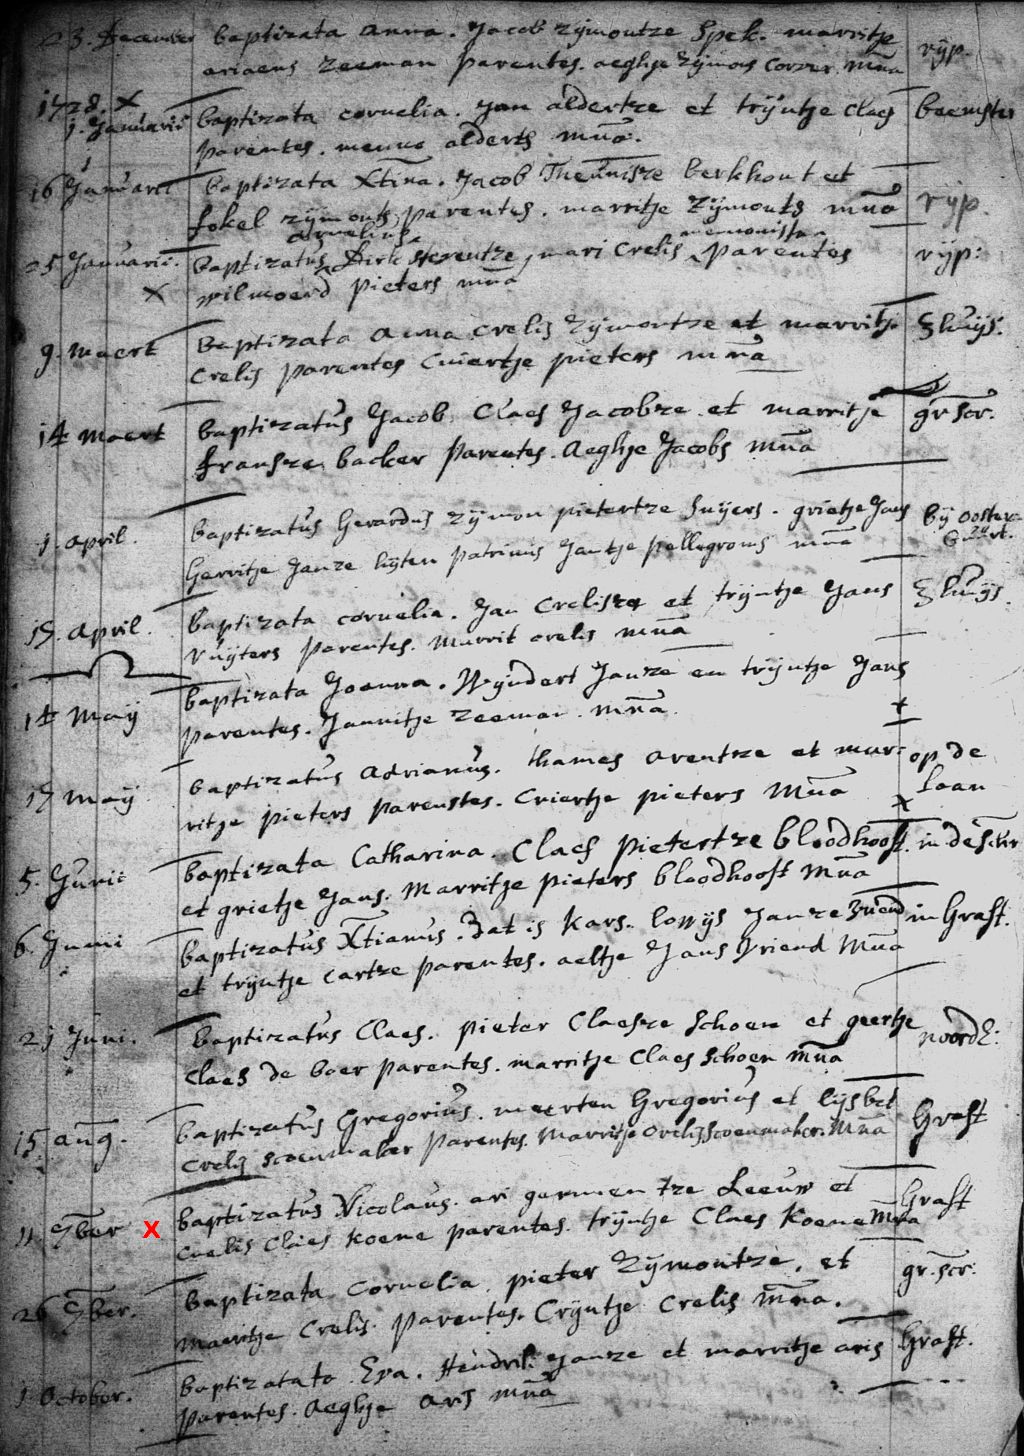 23. December baptizata Anna. Jacob Zijmontze Spek. marritje rijp.
ariaens Zeeman parentes. aeghje Zijmons Corver. mña
1728. X
1. Januarii baptizata cornelia. Jan aldertze et trijntje Claes beemster
parentes. menno alderts mña.
16 Januarii baptizata Xtina. Jacob Theunisze berkhout et
fokel zijmonts parentes. marritje Zijmonts mña rijp.
cornelius mennonista
25 Januarii. baptizatus Dirk, mari Crelis parentes rijp:
X wilmoend pieters mña
9. maert Baptizata Anna Crelis Zijmontze et marritje Sluijs.
Crelis parentes Cniertje pieters mña
14 maert baptizatus Jacob Claes Jacobze et marritje gr. scr.
fransze backer parentes. Aeghje Jacobs mña
1. april. baptizatus Gerardus Zijmon pietertze Snijers. grietje Jans bij ooster
Gerritje Janze lijten patrinus Jantje pellegroms mña buurt.
19. April. baptizata cornelia. Jan Crelisze et trijntje Jans Sluijs.
ruijters parentes. Marrit crelis mña
14 Maij baptizata Joanna. Wijndert Janze en trijntje Jans
parentes. Jannitje Zeeman. mña. x
17 maij baptizatus Adrianus. thames arentze et mar: op de
ritje pieters parenstes. Cniertje pieters Mña Laan
x
5. Junii baptizata Catharina. Claes pietertze bloodhooft. in de schr
et grietje Jans. Marritje pieters bloodhooft Mña
6. Junii baptizatus Xtianus. dat is Kars. lowijs Janze Vriend in Graft.
et trijntje Cartze parentes. aeltje Jans Vriend Mña
21 Juni. baptizatus Claes. pieter Claesze Schoen et geertje noordE:
Claes de boer parentes. marritje Claes Schoen mña
15 aug. baptizatus Gregorius. meerten Gregorius et lijsbet Graft
Crelis scoenmaker parentes. Marritje Crelis scoenmaker. Mña
11 7ber X baptizatus Nicolaus. ari garmentze Leeuw et Graft
Crelis Claes Koene parentes. trijntje Claes Koene Mña
26 7ber. baptizata Cornelia pieter Zijmontze. et gr. scr:
maeritje Crelis. parentes. Crijntje Crelis mña.
1 October. baptizatata Eva. Hendrik Janze et marritje aris Graft.
parentes. Aeghje Aris mña